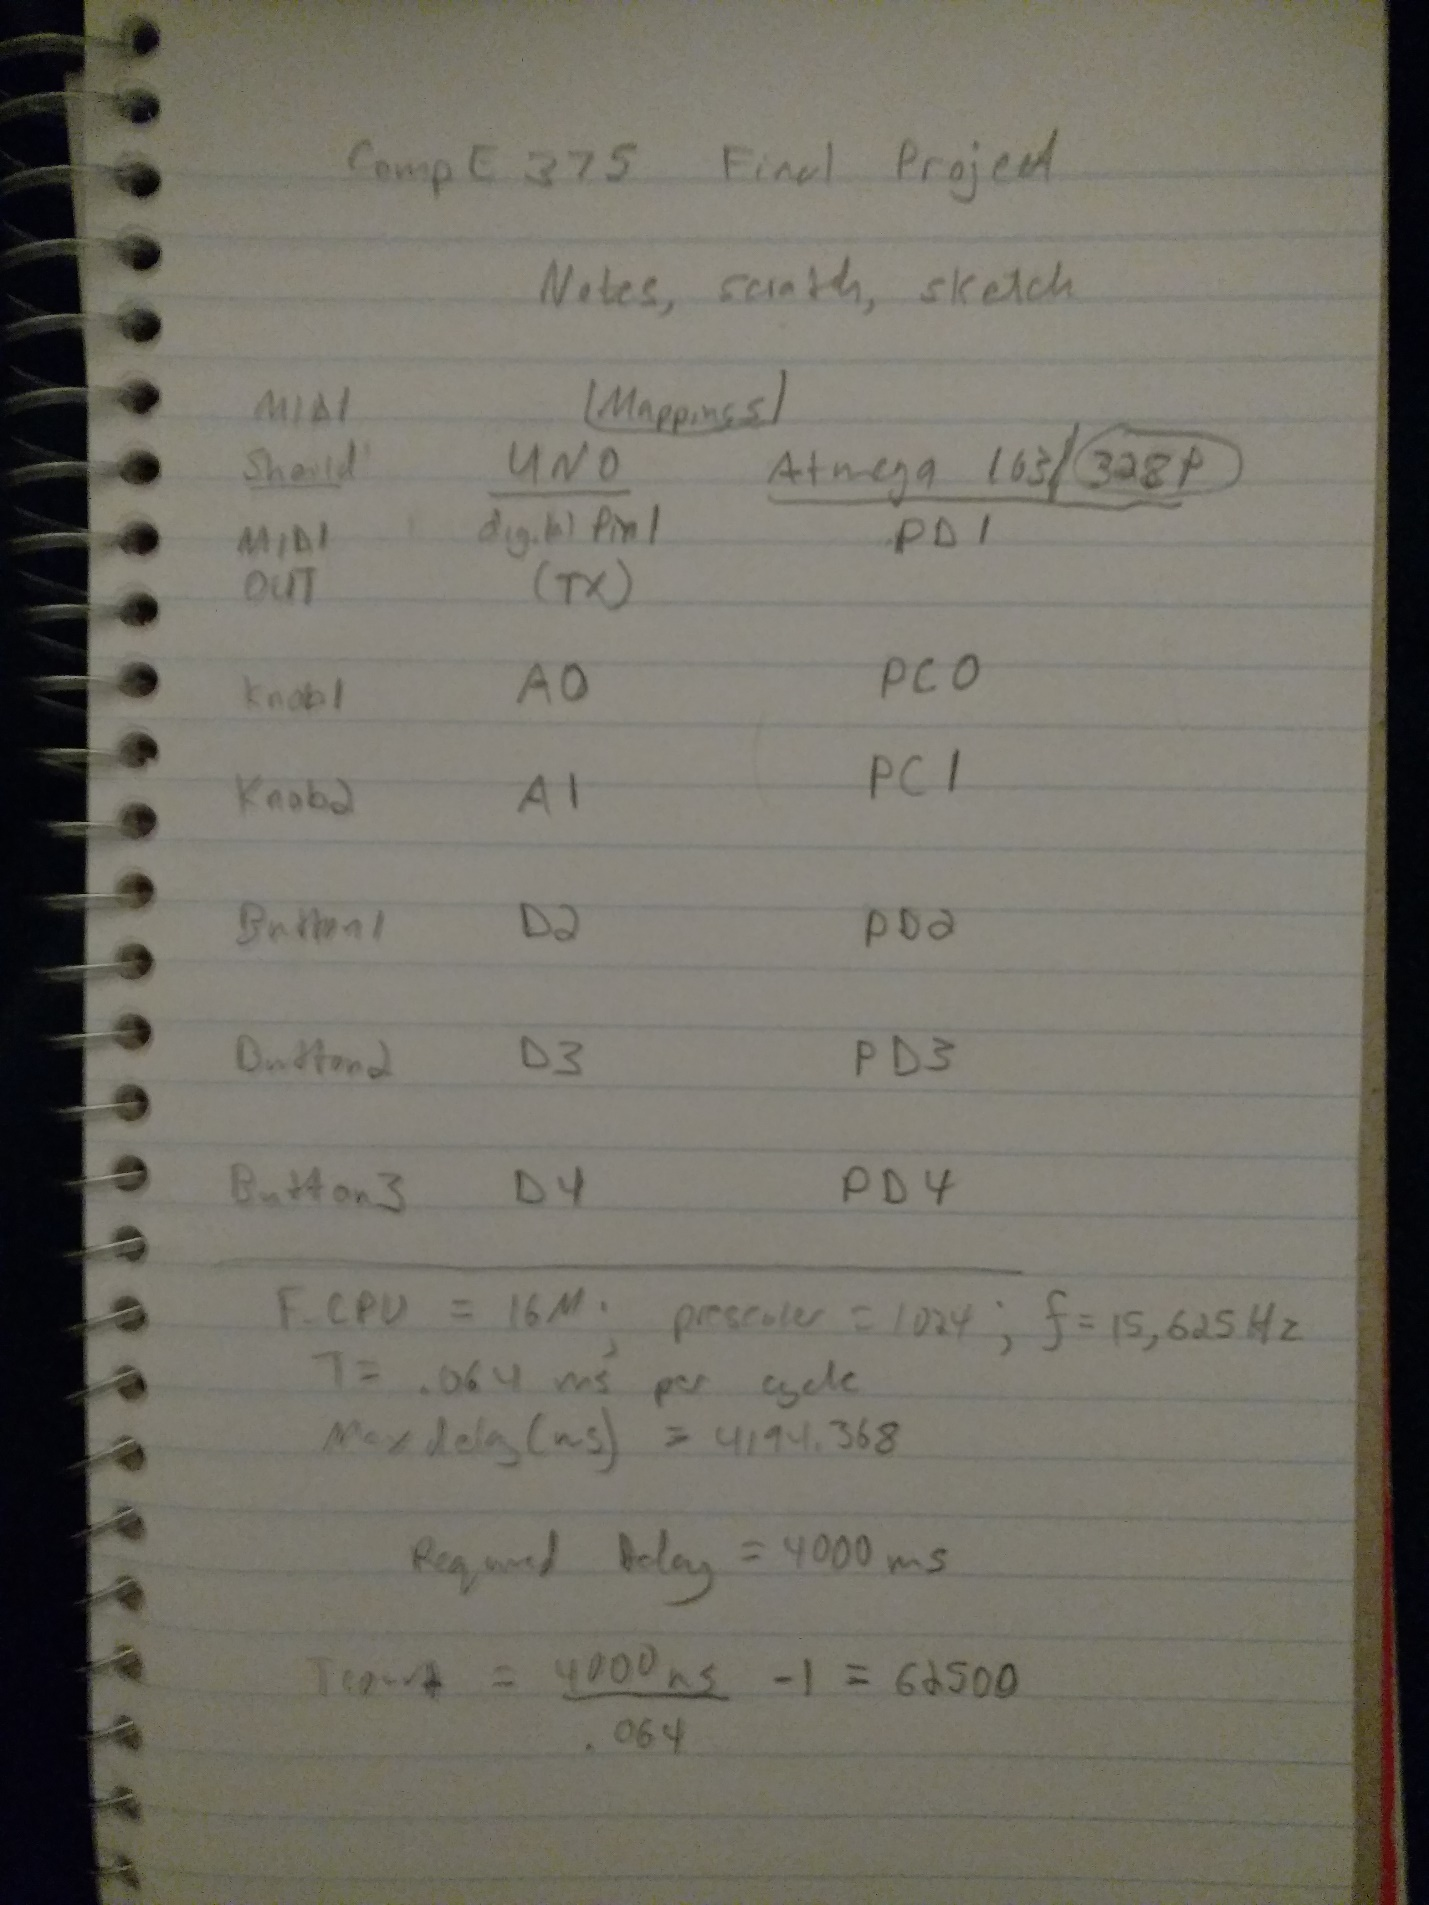 CompE 375 Final Project
Notes, scratch, sketch
MIDI |Mappings|
Sheild UNO Atmega 163/328P
MIDI digital Pin 1 PD1
OUT (TX)
Knob1 A0 PC0
Knob2 A1 PC1
Button1 D2 PD2
Button2 D3 PD3
Button3 D4 PD4
F_CPU = 16M; prescaler = 1024; f = 15,625 Hz
T = .064 ms per cycle
Max delay (ms) = 4194.368
Required Delay = 4000 ms
Tcount = 4000 ms -1 = 62500
.064